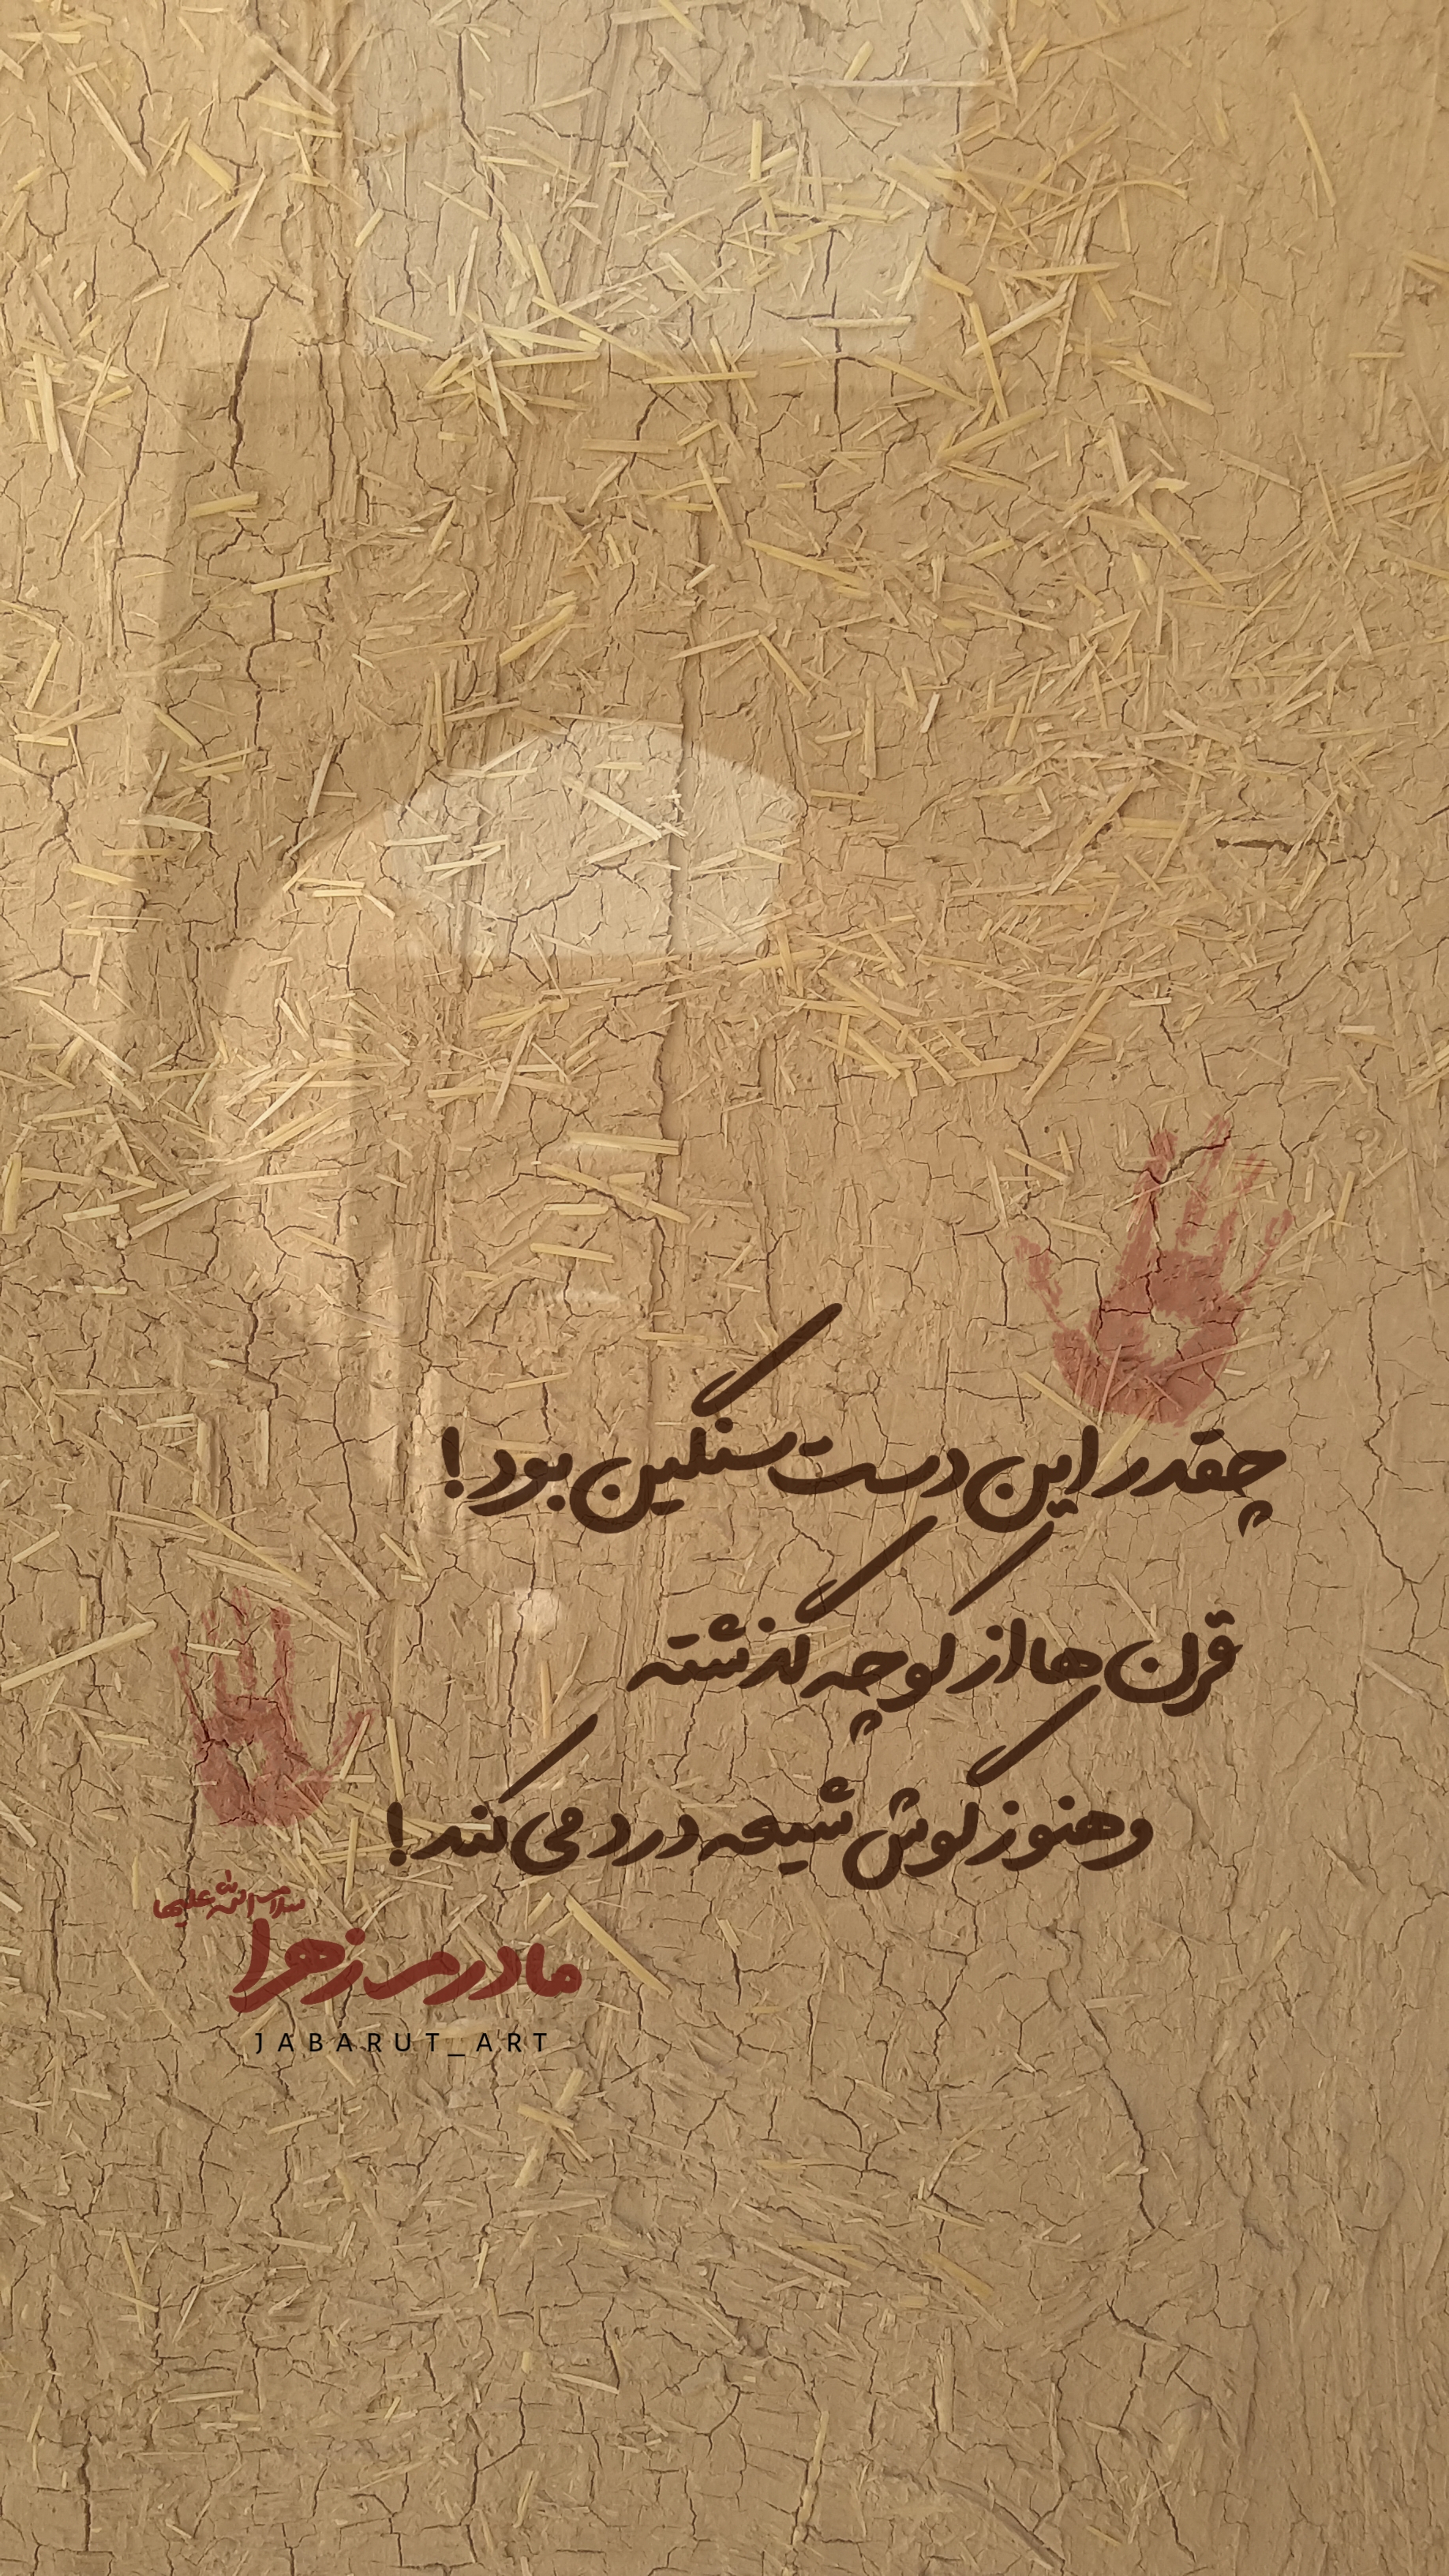 چقدر این دست سنگین بود!
قرن ها از کوچه گذشته
و هنوز گوش شیعه درد می کند!
سلام الله علیها
مادرم زهرا
JABARUT_ART